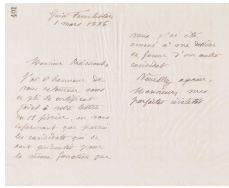 401
1 mars 1886
Monsieur
J'ai l'honneur de
vous retourner, sous
ce pli le certificat
joint à votre lettre
du 18 février, en vous
informant que parmi
les candidats qui se
sont présentés pour
la même fonction que
vous, j'ai été
amené à
en faveur d'un autre
candidat.
Veuillez agréer,
Monsieur, mes
parfaites